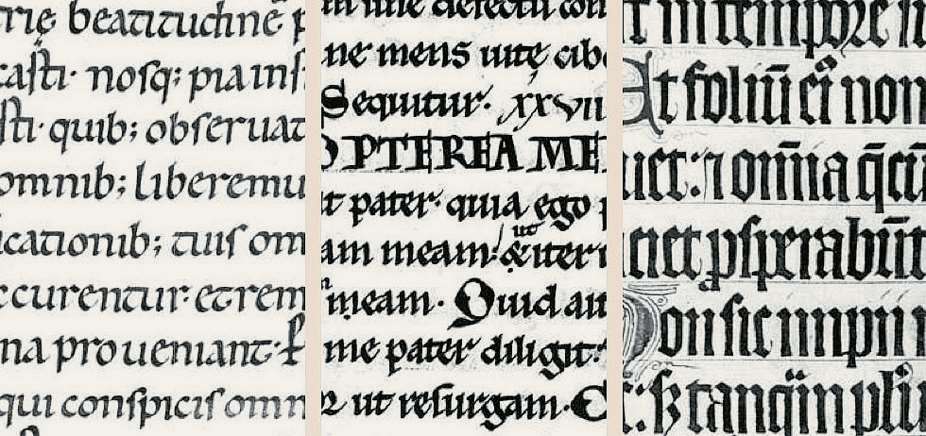 beatitudinẽ
casti· nosq; pia ins
sti· quib; obseruat
omnib; liberemu
icationib; tuis om
ccurentur· et rem
na proueniant·
qui conspicis omn
in une defectu con
ne mens uitę cibo
Sequitur· xxvii
OPTEREA ME
t pater· quia ego
ut
am meam· & iter
meam· Quid au
me pater diligit:
ut resurgam·
t in tempore
Et foliũ ei non
uet: ⁊ omĩa q̃cũ
ciet ꝓsperabũt
Non sic impii n
tanq̃m